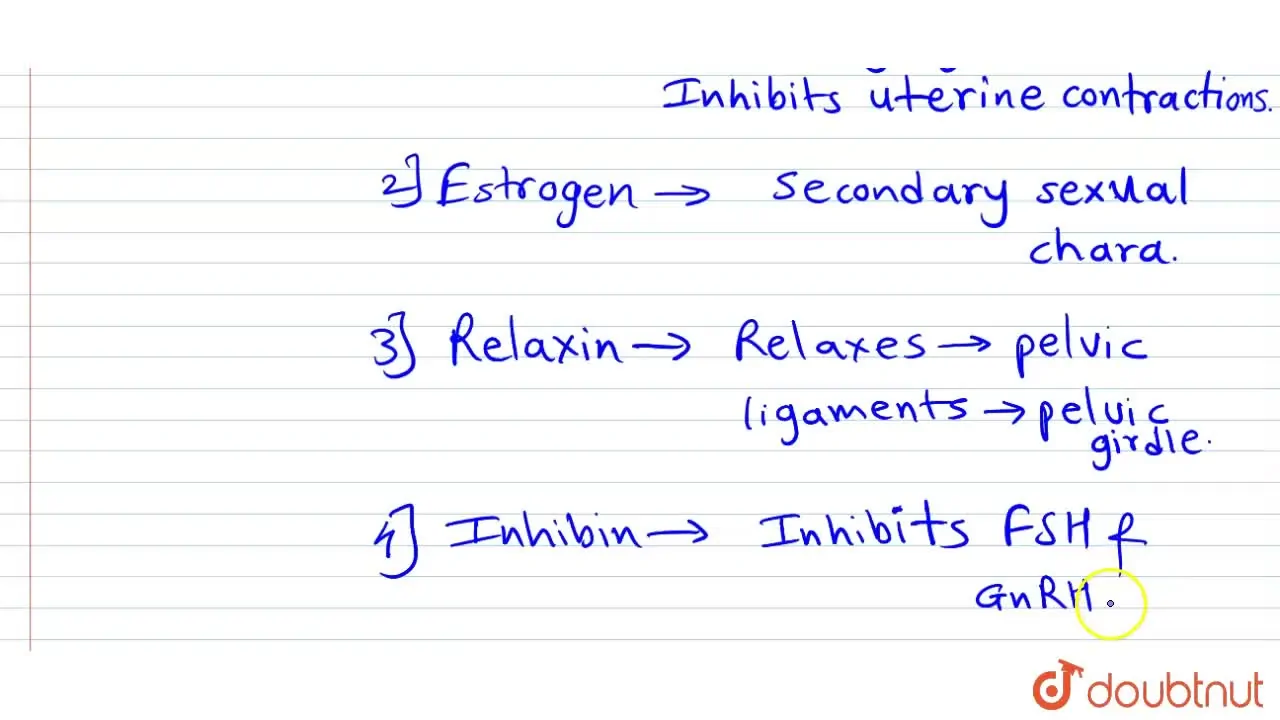 Inhibits uterine contractions.
2] Estrogen → Secondary sexual
chara.
3] Relaxin → Relaxes → pelvic
ligaments → pelvic
girdle.
4] Inhibin → Inhibits FSH &
GnRH.
doubtnut